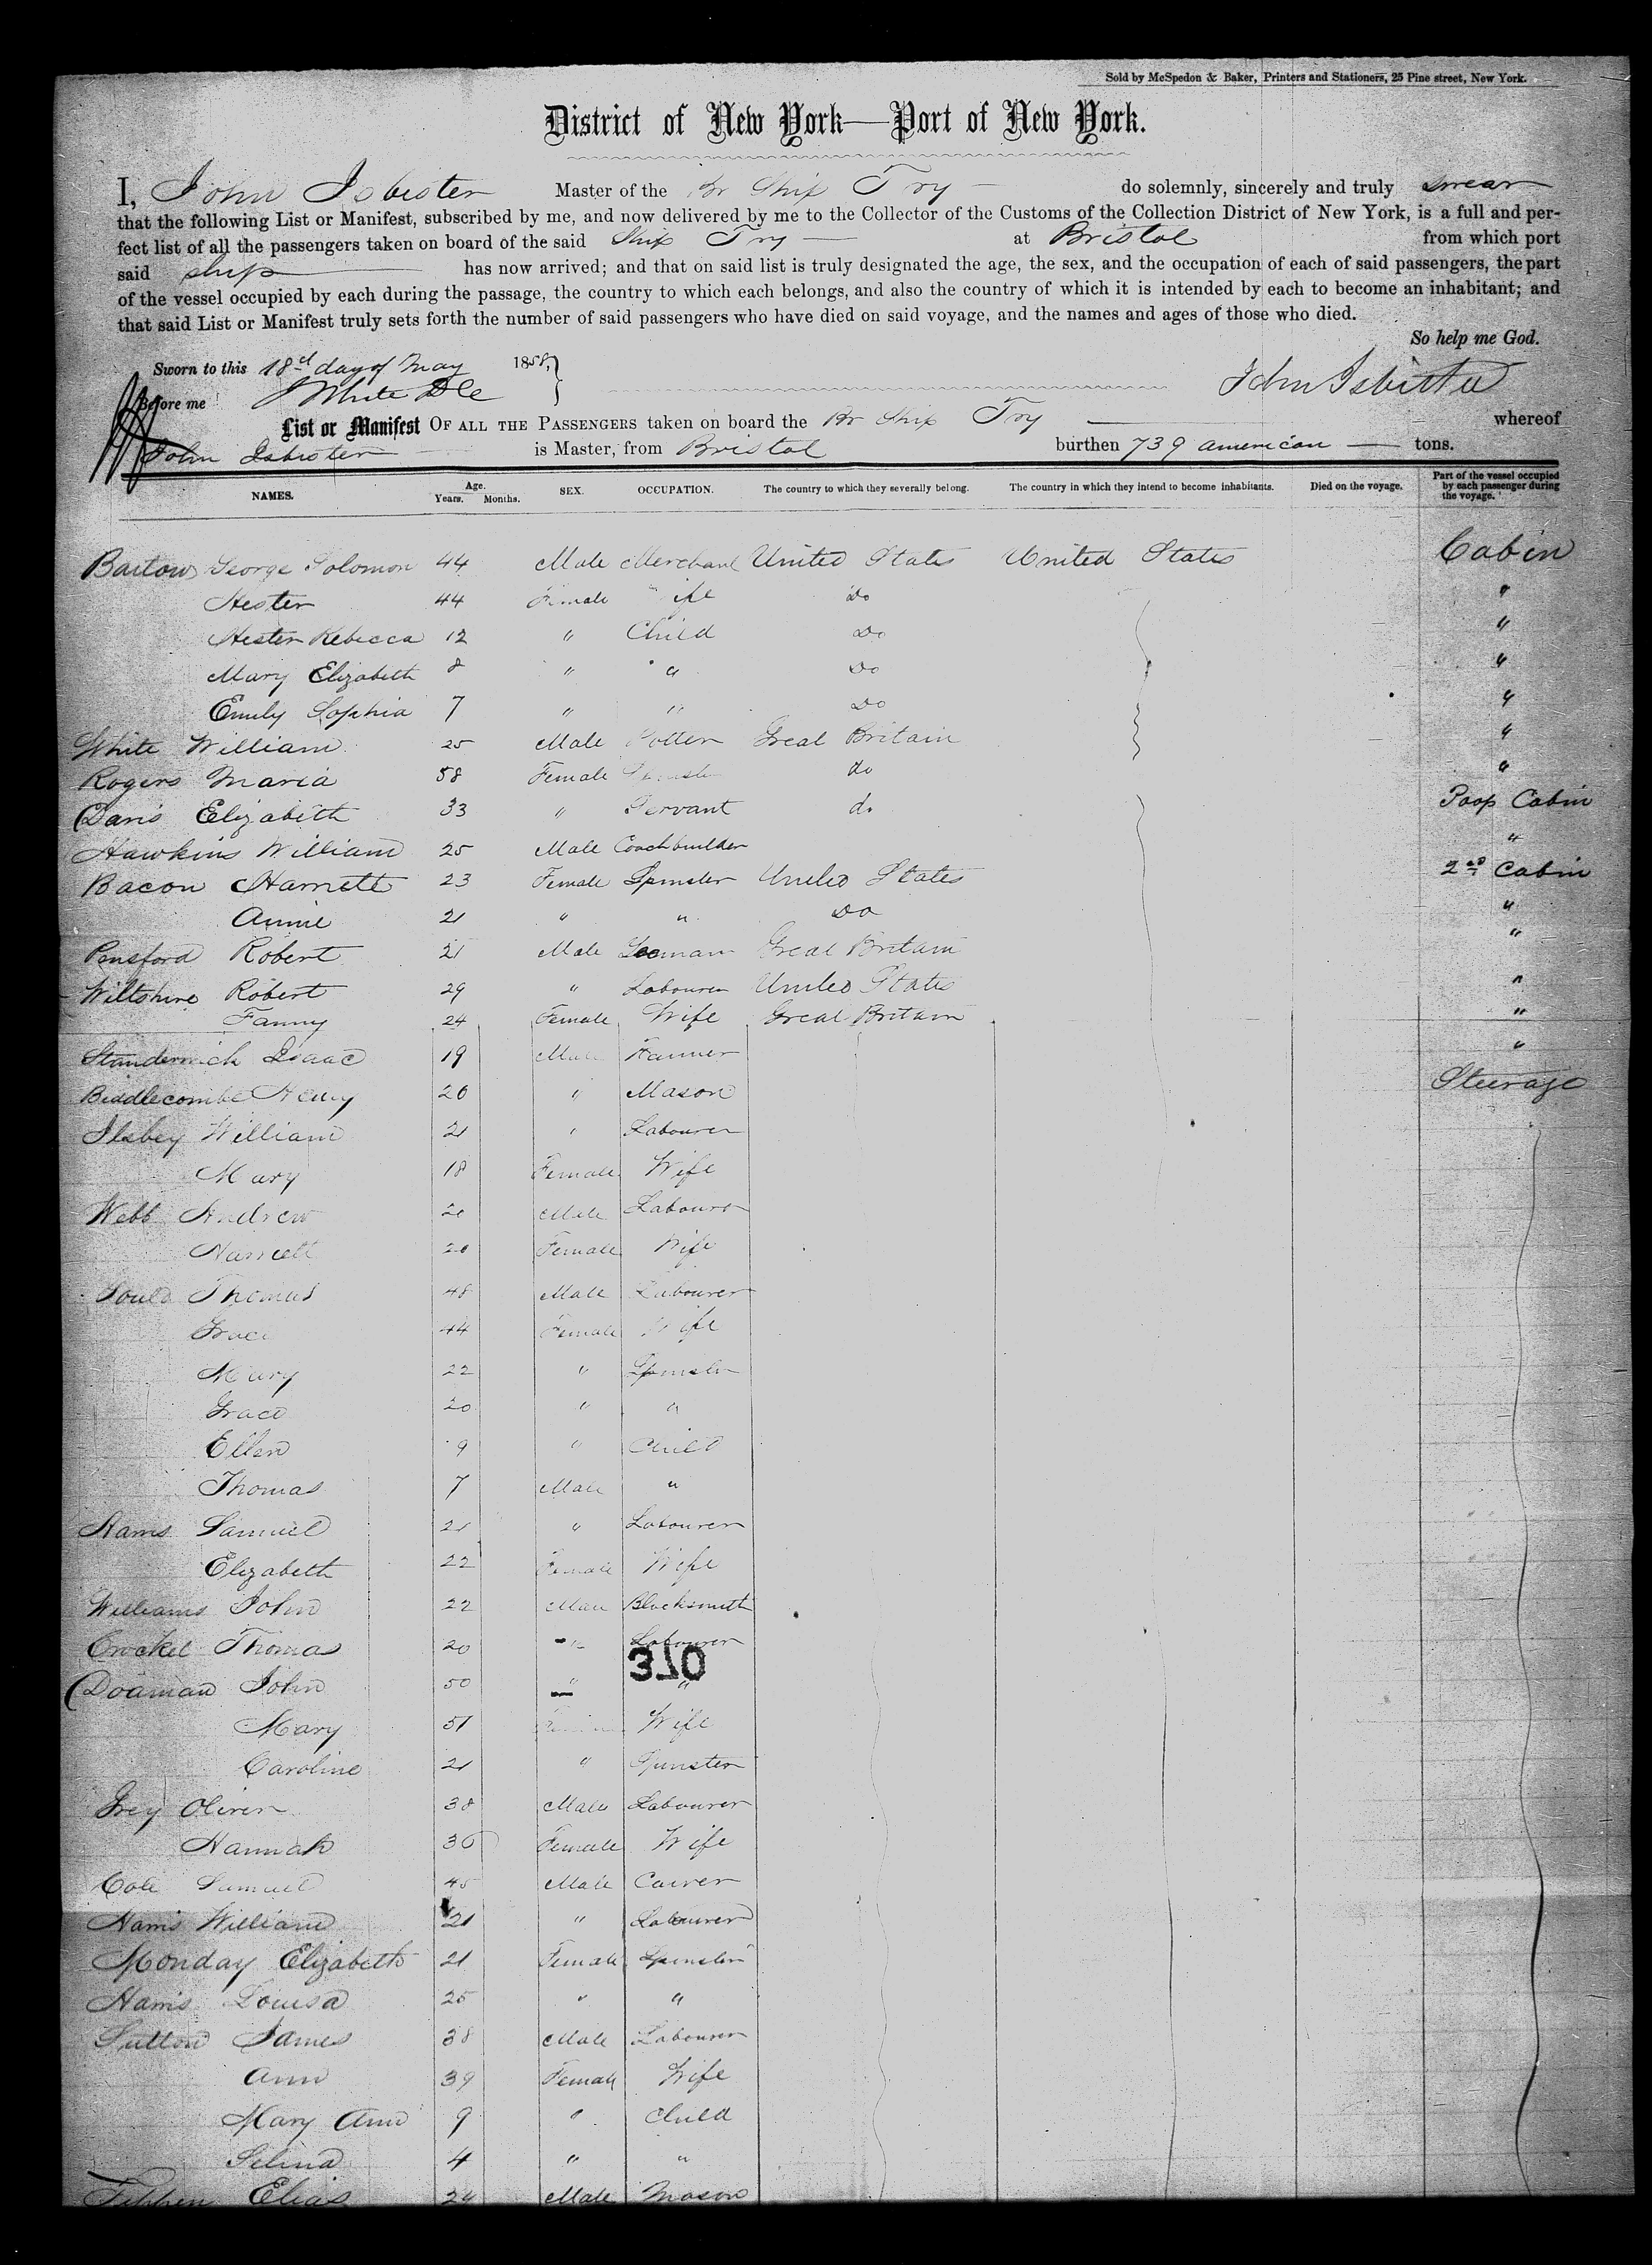 Sold by McSpedon & Baker, Printers and Stationers, 25 Pine street, New York.
District of New York—Port of New York.
I, John Isbister Master of the Br Ship Try do solemnly, sincerely and truly swear
that the following List or Manifest, subscribed by me, and now delivered by me to the Collector of the Customs of the Collection District of New York, is a full and per-
fect list of all the passengers taken on board of the said Ship Try at Bristol from which port
said ship has now arrived; and that on said list is truly designated the age, the sex, and the occupation of each of said passengers, the part
of the vessel occupied by each during the passage, the country to which each belongs, and also the country of which it is intended by each to become an inhabitant; and
that said List or Manifest truly sets forth the number of said passengers who have died on said voyage, and the names and ages of those who died.
So help me God.
Sworn to this 18th day of May 1858,
Before me J White John Isbister
List or Manifest OF ALL THE PASSENGERS taken on board the Br Ship Try whereof
John Isbister is Master, from Bristol burthen 739 american tons.
NAMES. Age. Years. Months. SEX. OCCUPATION. The country to which they severally belong. The country in which they intend to become inhabitants. Died on the voyage. Part of the vessel occupied by each passenger during the voyage.
George Solomon 44 Male Merchant United States United States Cabin
Hester 44 Female Wife Do "
Hester Rebecca 12 " Child Do "
Mary Elizabeth 8 " " Do "
Emily Sophia 7 " " Do "
White William 25 Male Potter Great Britain "
Rogers Maria 58 Female do "
Davis Elizabeth 33 " Servant do Poop Cabin
Hawkins William 25 Male Coachbuilder "
Bacon Harriett 23 Female Spinster United States 2nd Cabin
Annie 21 " " Do "
Pensford Robert 21 Male Seaman Great Britain "
Wiltshire Robert 29 " Labourer United States "
Fanny 24 Female Wife Great Britain "
Standerwick Isaac 19 Male Farmer "
Biddlecombe Henry 20 " Mason Steerage
William 21 " Labourer
Mary 18 Female Wife
Webb Andrew 20 Male Labourer
Harriett 20 Female Wife
Gould Thomas 48 Male Labourer
Grace 44 Female Wife
Mary 22 " Spinster
Grace 20 " "
Ellen 9 " Child
Thomas 7 Male "
Samuel 21 " Labourer
Elizabeth 22 Female Wife
Williams John 22 Male Blacksmith
Crocket Thomas 20 " Labourer
370
Doaman John 50 " "
Mary 51 Female Wife
Caroline 21 " Spinster
Grey Oliver 38 Male Labourer
Hannah 36 Female Wife
Cole Samuel 45 Male Carver
Harris William 21 " Labourer
Monday Elizabeth 21 Female Spinster
Harris Louisa 25 " "
Sutton James 38 Male Labourer
Ann 39 Female Wife
Mary Ann 9 " Child
Selina 4 " "
Elias 24 Male Mason